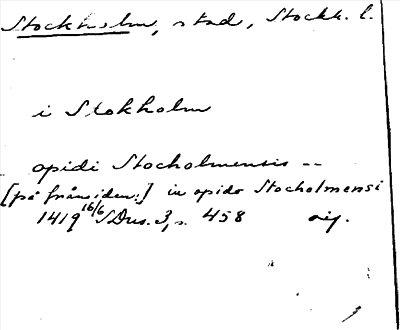 Stockholm, stad, Stockh. l.
i Stokholm
opidi Stocholmensis --
[på frånsiden:] in opido Stocholmensi
1419 16/6 SDns. 3, s. 458 orig.